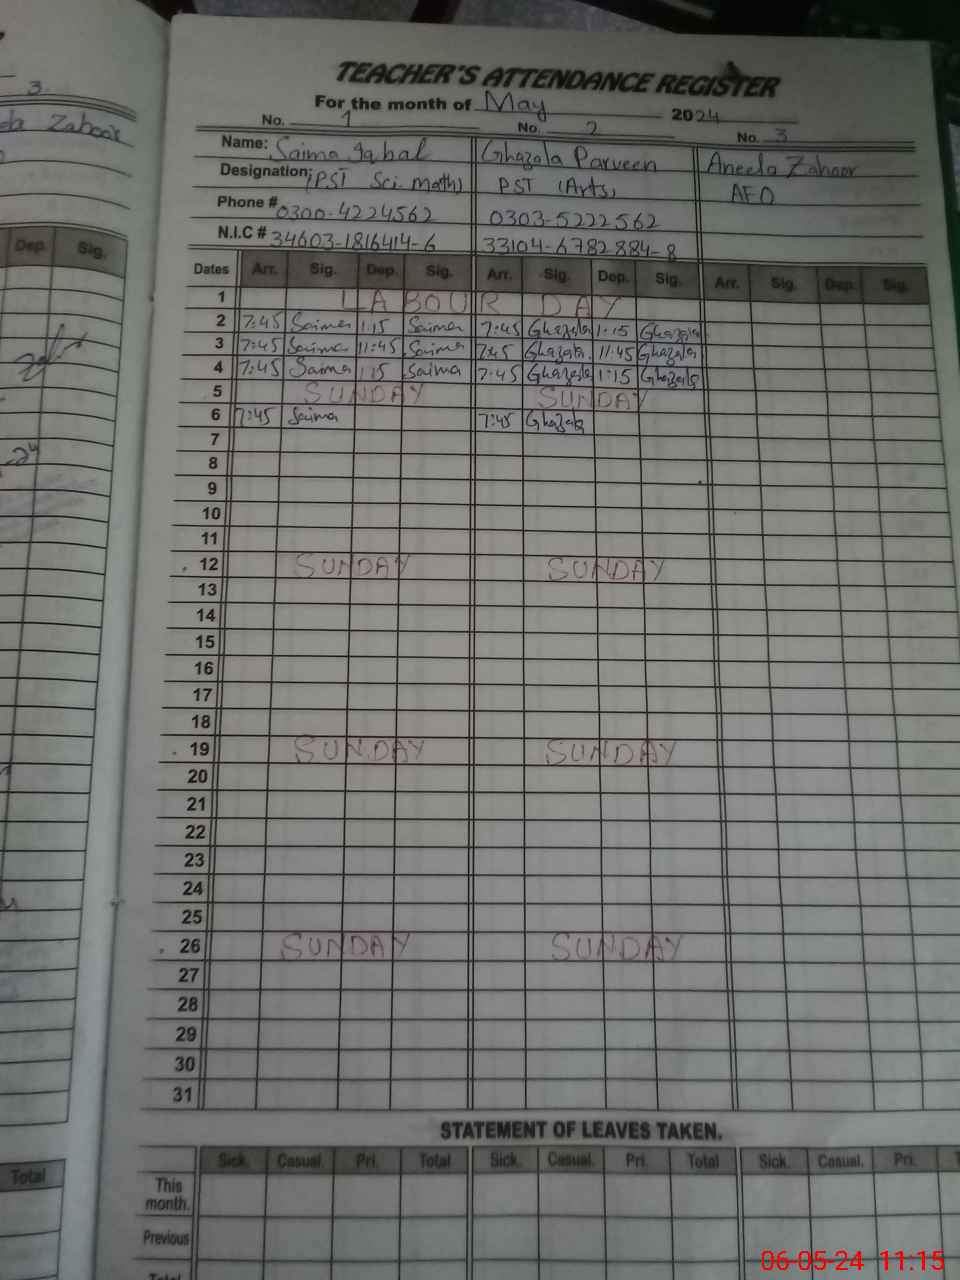 3
Zahoor
Dep. Sig.
Total
TEACHER'S ATTENDANCE REGISTER
For the month of May 2024
No. 1 No. 2 No. 3
Name: Saima Iqbal Ghazala Parveen Aneela Zahoor
Designation: (PST Sci. math) PST (Arts) AEO
Phone # 0300-4224562 0303-5222562
N.I.C # 34603-1816414-6 33104-6782884-8
Dates Arr. Sig. Dep. Sig. Arr. Sig. Dep. Sig. Arr. Sig. Dep. Sig.
1 LABOUR DAY
2 7:45 Saima 1:15 Saima 7:45 Ghazala 1:15 Ghazala
3 7:45 Saima 11:45 Saima 7:45 Ghazala 11:45 Ghazala
4 7:45 Saima 1:15 Saima 7:45 Ghazala 1:15 Ghazala
5 SUNDAY SUNDAY
6 7:45 Saima 7:45 Ghazala
7
8
9
10
11
12 SUNDAY SUNDAY
13
14
15
16
17
18
19 SUNDAY SUNDAY
20
21
22
23
24
25
26 SUNDAY SUNDAY
27
28
29
30
31
STATEMENT OF LEAVES TAKEN.
Sick. Casual. Pri. Total Sick. Casual. Pri. Total Sick. Casual. Pri.
This
month.
Previous
Total
06-05-24 11:15